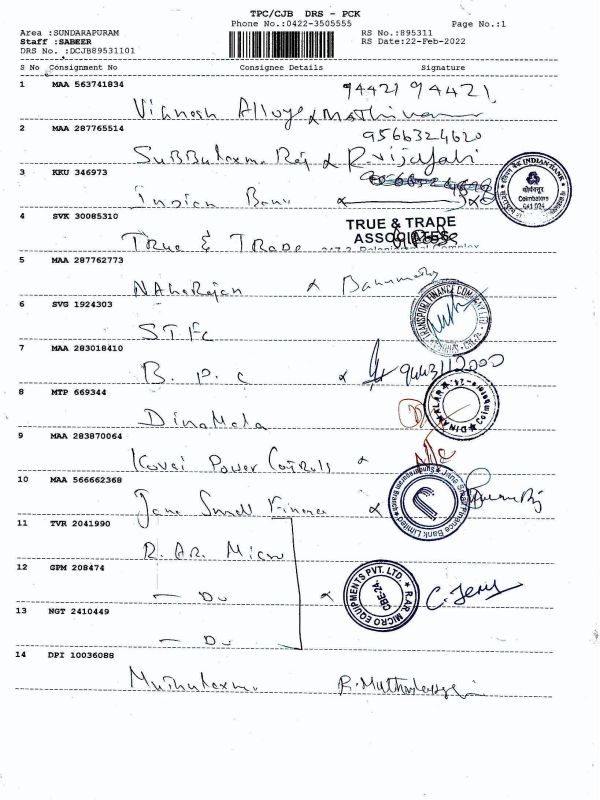 TPC/CJB DRS - PCK
Phone No.:0422-3505555
Page No.:1
Area :SUNDARAPURAM
RS No.:895311
Staff :SABEER
RS Date:22-Feb-2022
DRS No. :DCJB89531101
S No Consignment No Consignee Details Signature
1 MAA 563741834
94421 94421
Vignesh Alloys
2 MAA 287765514
9566324620
Subbulaxmi Raj & R. Vijaya
3 KKU 346973
INDIAN BANK
Coimbatore
641 024
Indian Bank
4 SVK 30085310
TRUE & TRADE
ASSOCIATES
True & Trade
5 MAA 287762773
6 SVG 1924303
TRANSPORT FINANCE COMPANY LTD
S.T.Fc
7 MAA 283018410
B. P. C
8 MTP 669344
DINAMALAR
Dinamala
9 MAA 283870064
Kovai Power Controls
10 MAA 566662368
Jana Small Finance Bank Limited
Jana Small Finance
11 TVR 2041990
R. AR. Micro
12 GPM 208474
R.AR MICRO EQUIPMENTS PVT. LTD.
CBE-24
— Do
C. Jery
13 NGT 2410449
— Do
14 DPI 10036088
Muthulaxmi